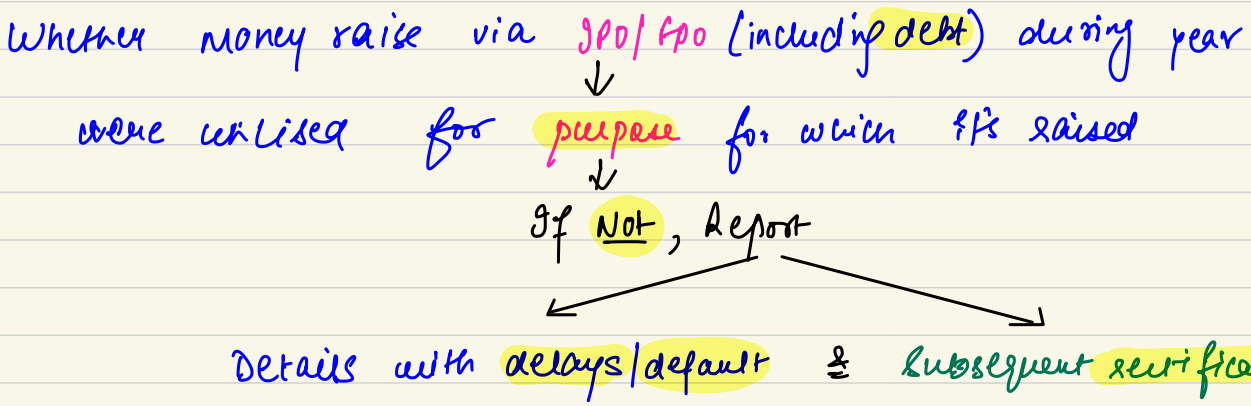 Whether money raise via IPO/FPO (including debt) during year
were utilised for purpose for which it's raised
If Not, Report
Details with delays/default & Subsequent rectifica